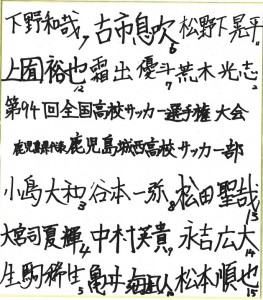 下野和哉7 古市息吹6 松野下晃平11
上園裕也12 霜出優斗7 荒木光志2
第94回全国高校サッカー選手権大会
鹿児島県代表鹿児島城西高校サッカー部
小島大和3 谷本一弥8 松田聖哉13
大宮司夏輝4 中村英貴9 永吉広大14
生駒稀生5 亀井 松本順也15